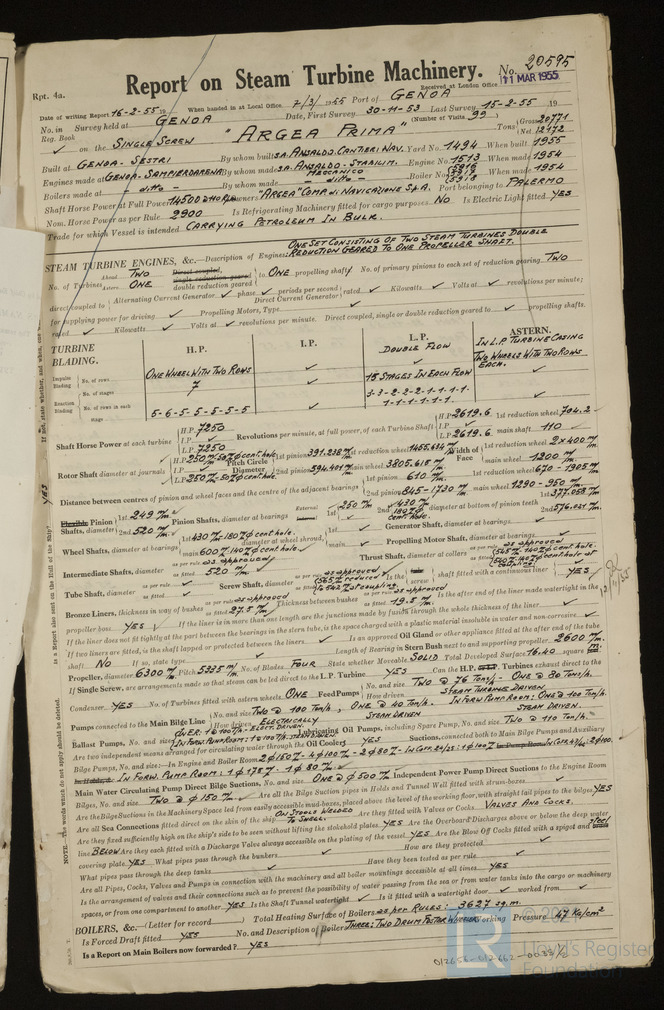 Rpt. 4a.
Report on Steam Turbine Machinery. No. 20595
11 MAR 1955
Received at London Office
Date of writing Report 16-2-55 19 When handed in at Local Office 7/3/1955 Port of GENOA
No. in Reg. Book Survey held at GENOA Date, First Survey 30-11-53 Last Survey 15-2-55 19
(Number of Visits 99)
on the SINGLE SCREW "ARGEA PRIMA" Tons Gross 20771 Net 12172
Built at GENOA-SESTRI By whom built SA. ANSALDO. CANTIERI NAV. Yard No. 1494 When built 1955
Engines made at GENOA-SAMPIERDARENA By whom made SA. ANSALDO-STABILIM. MECCANICO Engine No. 1513 When made 1954
Boilers made at -ditto- By whom made -ditto- Boiler No. When made 1954
Shaft Horse Power at Full Power Owners "ARGEA" COMP. DI NAVIGAZIONE S.p.A. Port belonging to PALERMO
Nom. Horse Power as per Rule 2900 Is Refrigerating Machinery fitted for cargo purposes NO Is Electric Light fitted YES
Trade for which Vessel is intended CARRYING PETROLEUM IN BULK.
STEAM TURBINE ENGINES, &c.—Description of Engines ONE SET CONSISTING OF TWO STEAM TURBINES DOUBLE REDUCTION GEARED TO ONE PROPELLER SHAFT.
No. of Turbines Ahead TWO Astern ONE Direct coupled, single reduction geared double reduction geared to ONE propelling shaft No. of primary pinions to each set of reduction gearing TWO
direct coupled to Alternating Current Generator phase periods per second Direct Current Generator rated Kilowatts Volts at revolutions per minute;
for supplying power for driving Propelling Motors, Type
rated Kilowatts Volts at revolutions per minute. Direct coupled, single or double reduction geared to propelling shafts.
TURBINE BLADING. H.P. I.P. L.P. DOUBLE FLOW ASTERN. IN L.P. TURBINE CASING TWO WHEELS WITH TWO ROWS EACH.
Impulse Blading No. of rows ONE WHEEL WITH TWO ROWS
Reaction Blading No. of stages 7 15 STAGES IN EACH FLOW
No. of rows in each stage 5-6-5-5-5-5-5 3-3-2-2-2-1-1-1-1- 1-1-1-1-1-1.
Shaft Horse Power at each turbine H.P. 7250 I.P. L.P. 7250 Revolutions per minute, at full power, of each Turbine Shaft H.P. 2619.6 I.P. L.P. 2619.6 1st reduction wheel 704.2 main shaft 110
Rotor Shaft diameter at journals H.P. 250 m/m I.P. L.P. 250 m/m Pitch Circle Diameter 1st pinion 391.238 m/m 2nd pinion 594.401 m/m 1st reduction wheel 1455.634 m/m main wheel 3805.618 m/m Width of Face 1st reduction wheel 2x400 m/m main wheel 1200 m/m
Distance between centres of pinion and wheel faces and the centre of the adjacent bearings 1st pinion 610 m/m 2nd pinion 845-1730 m/m 1st reduction wheel 670-1905 m/m main wheel 1290-950 m/m
Flexible Pinion Shafts, diameter 1st 249 m/m 2nd 520 m/m Pinion Shafts, diameter at bearings External 1st 250 m/m 2nd 430 m/m 180 ø cent. hole. diameter at bottom of pinion teeth 1st 377.058 m/m 2nd 576.421 m/m
Wheel Shafts, diameter at bearings 1st 430 m/m-180 ø cent hole main 600 m/m-140 ø cent. hole diameter at wheel shroud, 1st main Generator Shaft, diameter at bearings Propelling Motor Shaft, diameter at bearings
Intermediate Shafts, diameter as per rule as approved as fitted 520 m/m Thrust Shaft, diameter at collars as per rule as approved as fitted
Tube Shaft, diameter as per rule as fitted Screw Shaft, diameter as per rule as approved as fitted Is the shaft fitted with a continuous liner YES
Bronze Liners, thickness in way of bushes as per rule as approved as fitted 27.5 m/m Thickness between bushes as per rule as approved as fitted 19.5 m/m Is the after end of the liner made watertight in the
propeller boss YES If the liner is in more than one length are the junctions made by fusion through the whole thickness of the liner
If the liner does not fit tightly at the part between the bearings in the stern tube, is the space charged with a plastic material insoluble in water and non-corrosive
If two liners are fitted, is the shaft lapped or protected between the liners Is an approved Oil Gland or other appliance fitted at the after end of the tube
shaft NO If so, state type Length of Bearing in Stern Bush next to and supporting propeller 2600 m/m.
Propeller, diameter 6300 m/m Pitch 5335 m/m No. of Blades FOUR State whether Moveable SOLID Total Developed Surface 16.40 square m.
If Single Screw, are arrangements made so that steam can be led direct to the L.P. Turbine YES Can the H.P. Turbines exhaust direct to the
Condenser YES No. of Turbines fitted with astern wheels ONE Feed Pumps No. and size TWO @ 76 Tons/h - ONE @ 30 Tons/h. How driven STEAM TURBINE DRIVEN
Pumps connected to the Main Bilge Line No. and size TWO @ 100 Ton/h, ONE @ 40 Ton/h - IN FORW. PUMP ROOM: ONE @ 100 Ton/h. How driven ELECTRICALLY STEAM DRIVEN STEAM DRIVEN.
Ballast Pumps, No. and size Lubricating Oil Pumps, including Spare Pump, No. and size TWO @ 110 Ton/h.
Are two independent means arranged for circulating water through the Oil Cooler YES Suctions, connected both to Main Bilge Pumps and Auxiliary
Bilge Pumps, No. and size:—In Engine and Boiler Room
IN FORW. PUMP ROOM:
Main Water Circulating Pump Direct Bilge Suctions, No. and size ONE @ ø 500 m/m Independent Power Pump Direct Suctions to the Engine Room
Bilges, No. and size TWO @ ø 150 m/m Are all the Bilge Suction pipes in Holds and Tunnel Well fitted with strum-boxes
Are the Bilge Suctions in the Machinery Space led from easily accessible mud-boxes, placed above the level of the working floor, with straight tail pipes to the bilges YES
Are all Sea Connections fitted direct on the skin of the ship ON STOOLS WELDED TO SHELL Are they fitted with Valves or Cocks VALVES AND COCKS.
Are they fixed sufficiently high on the ship's side to be seen without lifting the stokehold plates YES Are the Overboard Discharges above or below the deep water
line BELOW Are they each fitted with a Discharge Valve always accessible on the plating of the vessel YES Are the Blow Off Cocks fitted with a spigot and
covering plate YES What pipes pass through the bunkers How are they protected
What pipes pass through the deep tanks Have they been tested as per rule
Are all Pipes, Cocks, Valves and Pumps in connection with the machinery and all boiler mountings accessible at all times YES
Is the arrangement of valves and their connections such as to prevent the possibility of water passing from the sea or from water tanks into the cargo or machinery
spaces, or from one compartment to another YES Is the Shaft Tunnel watertight Is it fitted with a watertight door worked from
BOILERS, &c.—(Letter for record) Total Heating Surface of Boilers as per RULES: 3627 sq.m.
Is Forced Draft fitted YES No. and Description of Boilers THREE; TWO DRUM FOSTER WHEELER Working Pressure 47 Kg/cm²
Is a Report on Main Boilers now forwarded? YES
LR
Lloyd's Register Foundation
012656-012662-0033 1/2